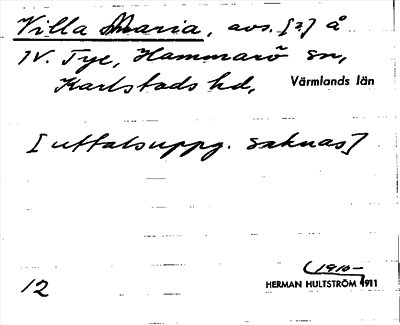 Villa Maria, avs. [2] å
IV. Tye, Hammarö sn,
Karlstads hd, Värmlands län
[uttalsuppg. saknas]
(1910–
12 HERMAN HULTSTRÖM 1911